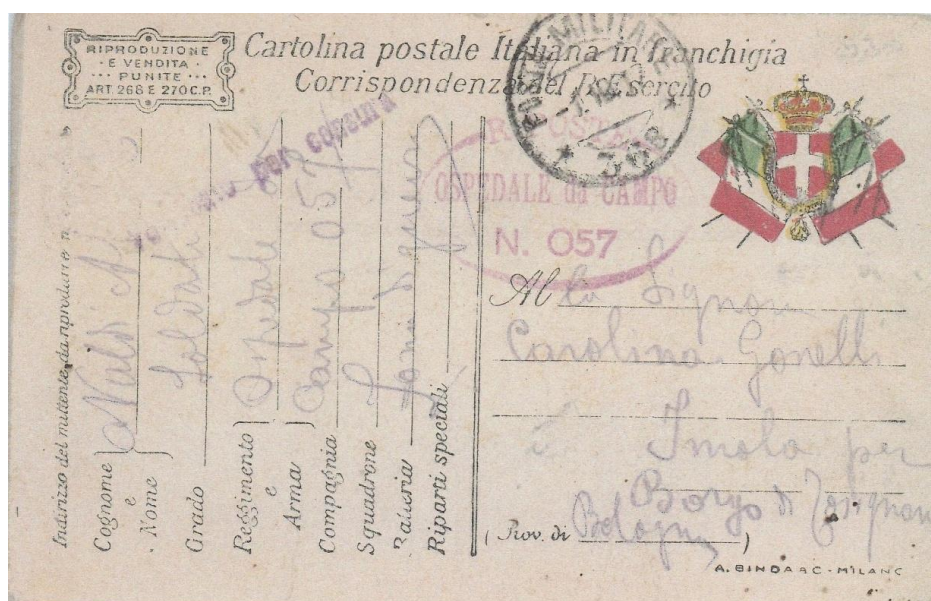 RIPRODUZIONE
E VENDITA
PUNITE
ART. 268 E 270 C.P.
Cartolina postale Italiana in franchigia
Corrispondenza del R. Esercito
POSTA MILITARE
368
per censura
OSPEDALE da CAMPO
N. 057
Indirizzo del mittente da riprodurre
Cognome
e
Nome
Naldi
Grado
Soldati
Reggimento
e
Arma
Ospedale
Compagnia
Campo 057
Squadrone
Batteria
Riparti speciali
Al la Signora
Carolina Gonelli
Imola per
Borgo di Tossignano
(Prov. di Bologna)
A. BINDA & C - MILANO